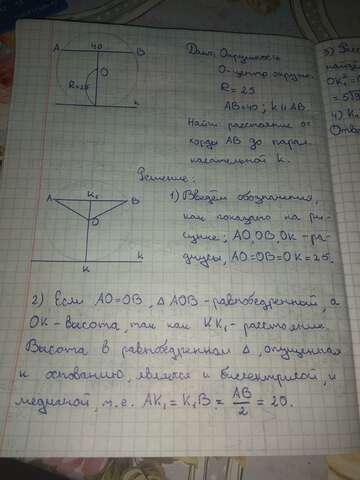 A 40 B
O
R=25
k
Дано: Окружность
O-центр окружн.
R = 25
AB=40; k ∥ AB
Найти: расстояние от
хорды AB до парал.
касательной k.
3)
OK
4) K
Отве
Решение:
A K₁ B
O
K
1) Введём обозначения,
как показано на ри-
сунке; AO, OB, OK - ра-
диусы, AO=OB=OK=25.
2) Если AO=OB, △ AOB - равнобедренный, а
OK - высота, так как KK₁ - расстояние.
Высота в равнобедренном △, опущенная
к основанию, является и биссектрисой, и
медианой, т.е. AK₁ = K₁B = AB/2 = 20.